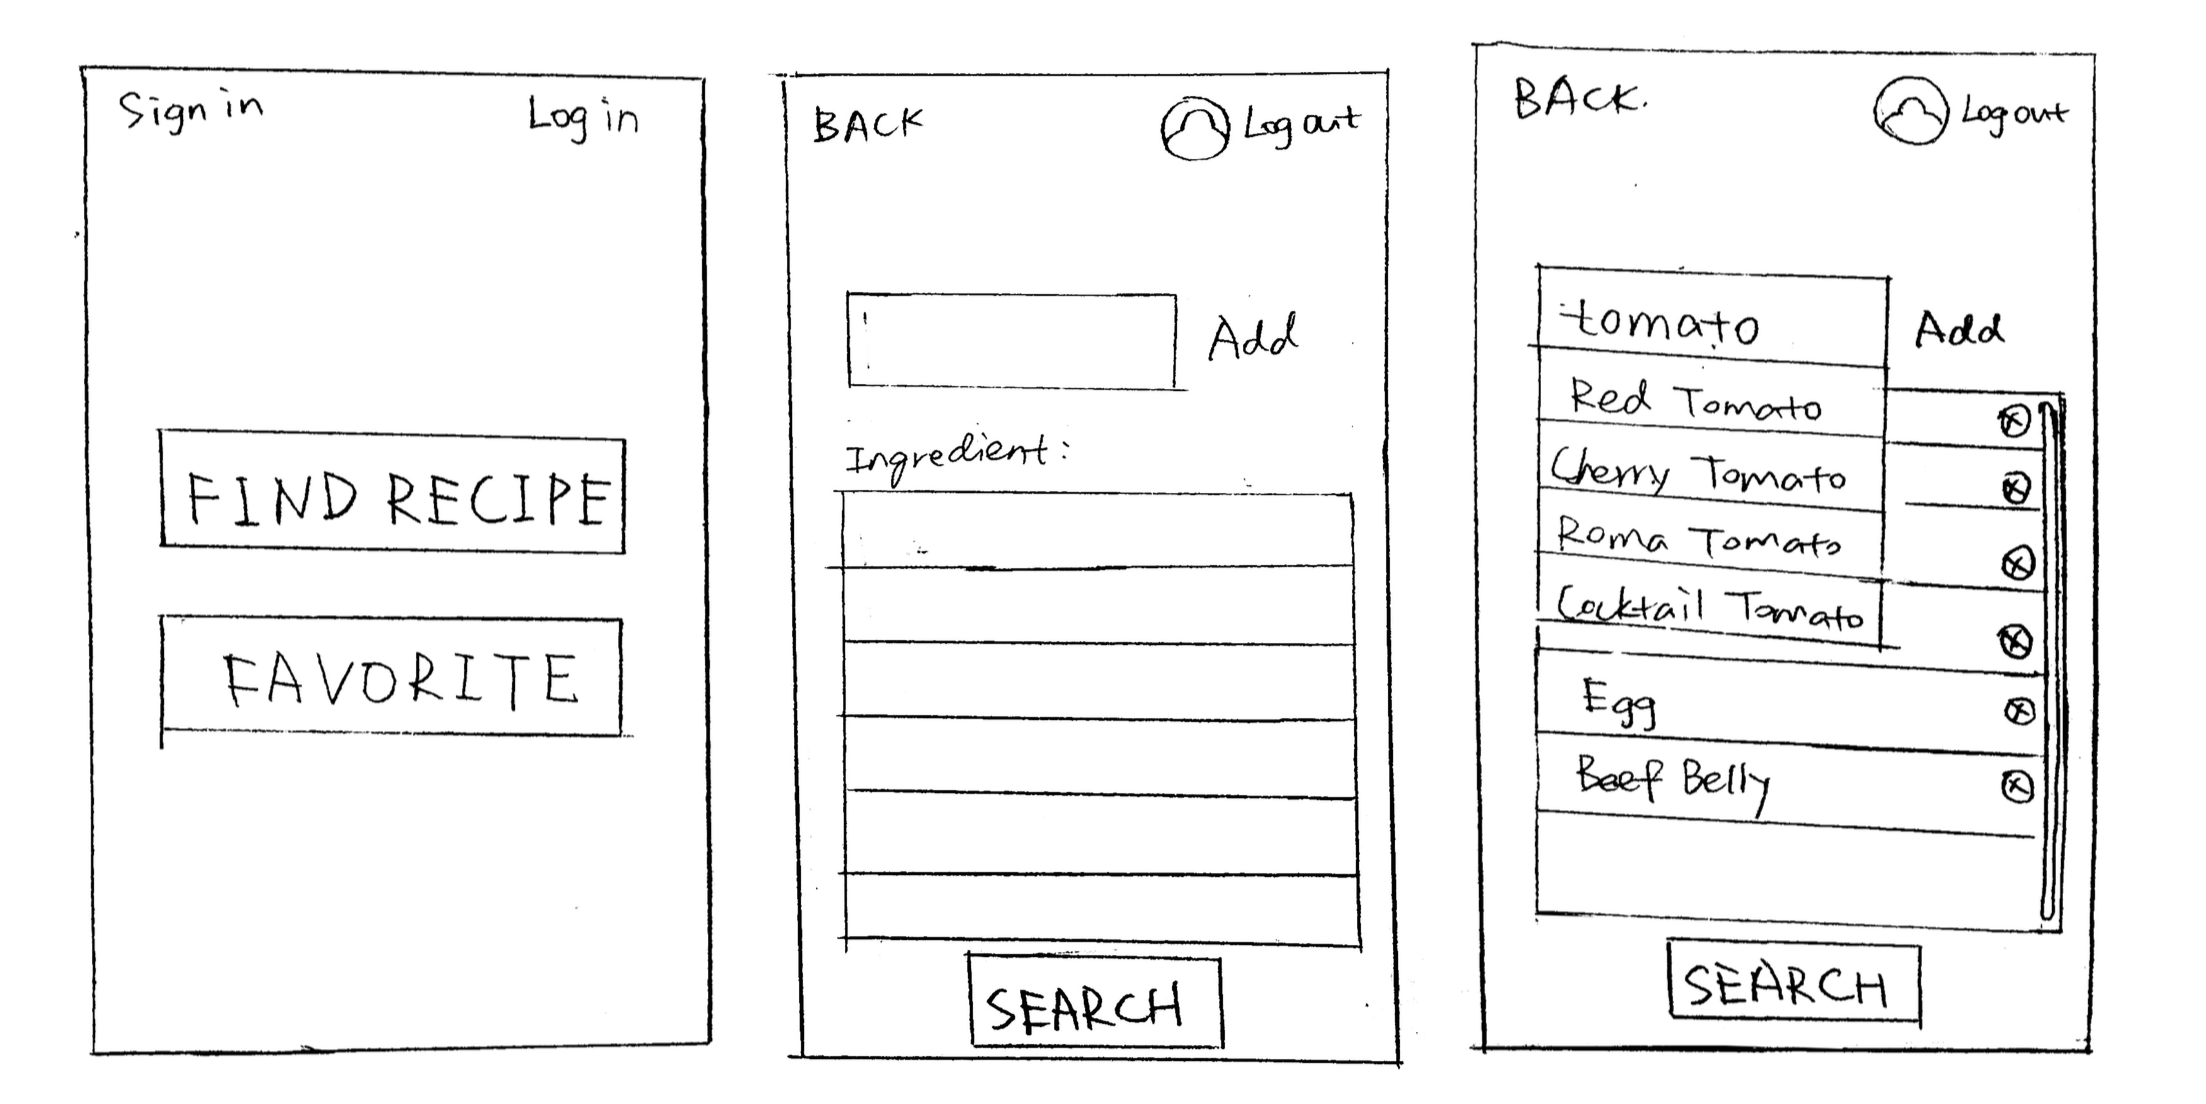 Sign in
Log in
FIND RECIPE
FAVORITE
BACK
Log out
Add
Ingredient:
SEARCH
BACK.
Log out
tomato
Add
Red Tomato
Cherry Tomato
Roma Tomato
Cocktail Tomato
Egg
Beef Belly
SEARCH